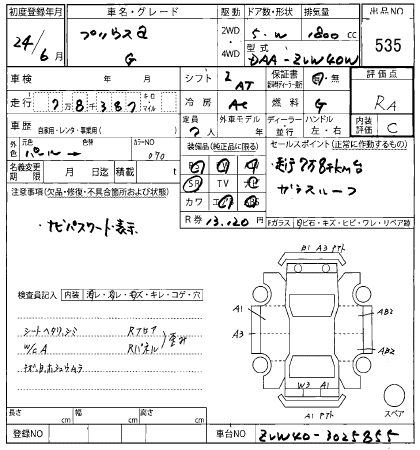 初度登録年月 車名・グレード 駆動 ドア数・形状 排気量 出品NO
24年6月 プリウスα G 2WD 4WD 5・W 1800cc 535
型式 DAA-ZVW40W
車検 年 月 シフト AT 保証書 有・無 評価点
走行 78387 キロ マイル 冷房 AC 燃料 G RA
車歴 自家用・レンタ・事業用( ) 定員 7人 外車モデル 年 ディーラー 並行 ハンドル 左・右 内装評価 C
外色 元色 パール 色替 カラーNO 070
名義変更期限 月 日 積載 t
装備品(純正品に限る) セールスポイント(正常に動作するもの)
SR TV
カワ
走行7万8千km台
ガラスルーフ
注意事項(欠品・修復・不具合箇所および状態)
ナビパスワード・表示
R券 13,120円
Fガラス 飛び石・キズ・ヒビ・ワレ・リペア跡
検査員記入 内装 汚レ・スレ・コゲ・穴
シートヘタリ、シミ Rフロア
W/C A Rパネル 歪み
B1 A3
A1 AB2
A3 AB2
W3 A1
A1
スペア
長さ cm 幅 cm 高さ cm
登録NO 車台NO ZVW40-3025855